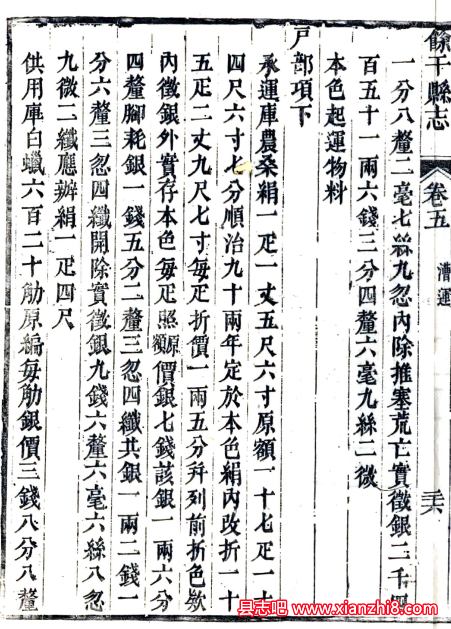 餘干縣志
卷五
漕運
一分八釐二毫七絲九忽內除推塞荒亡實徵銀二千四
百五十一兩六錢三分四釐六毫九絲二微
本色起運物料
戸部項下
承運庫農桑絹一疋一丈五尺六寸原額一十七疋一丈
四尺六寸七分順治九十兩年定於本色絹內改折一十
五疋二丈九尺七寸每疋折價一兩五分幷列前折色欵
內徵銀外實存本色每疋照原額價銀七錢該銀一兩六分
四釐腳耗銀一錢五分二釐三忽四纖共銀一兩二錢一
分六釐三忽四纖開除實徵銀九錢六釐六毫六絲八忽
九微二纖應辦絹一疋四尺
供用庫白蠟六百二十觔原編每觔銀價三錢八分八釐
县志吧@www.xianzhi8.com